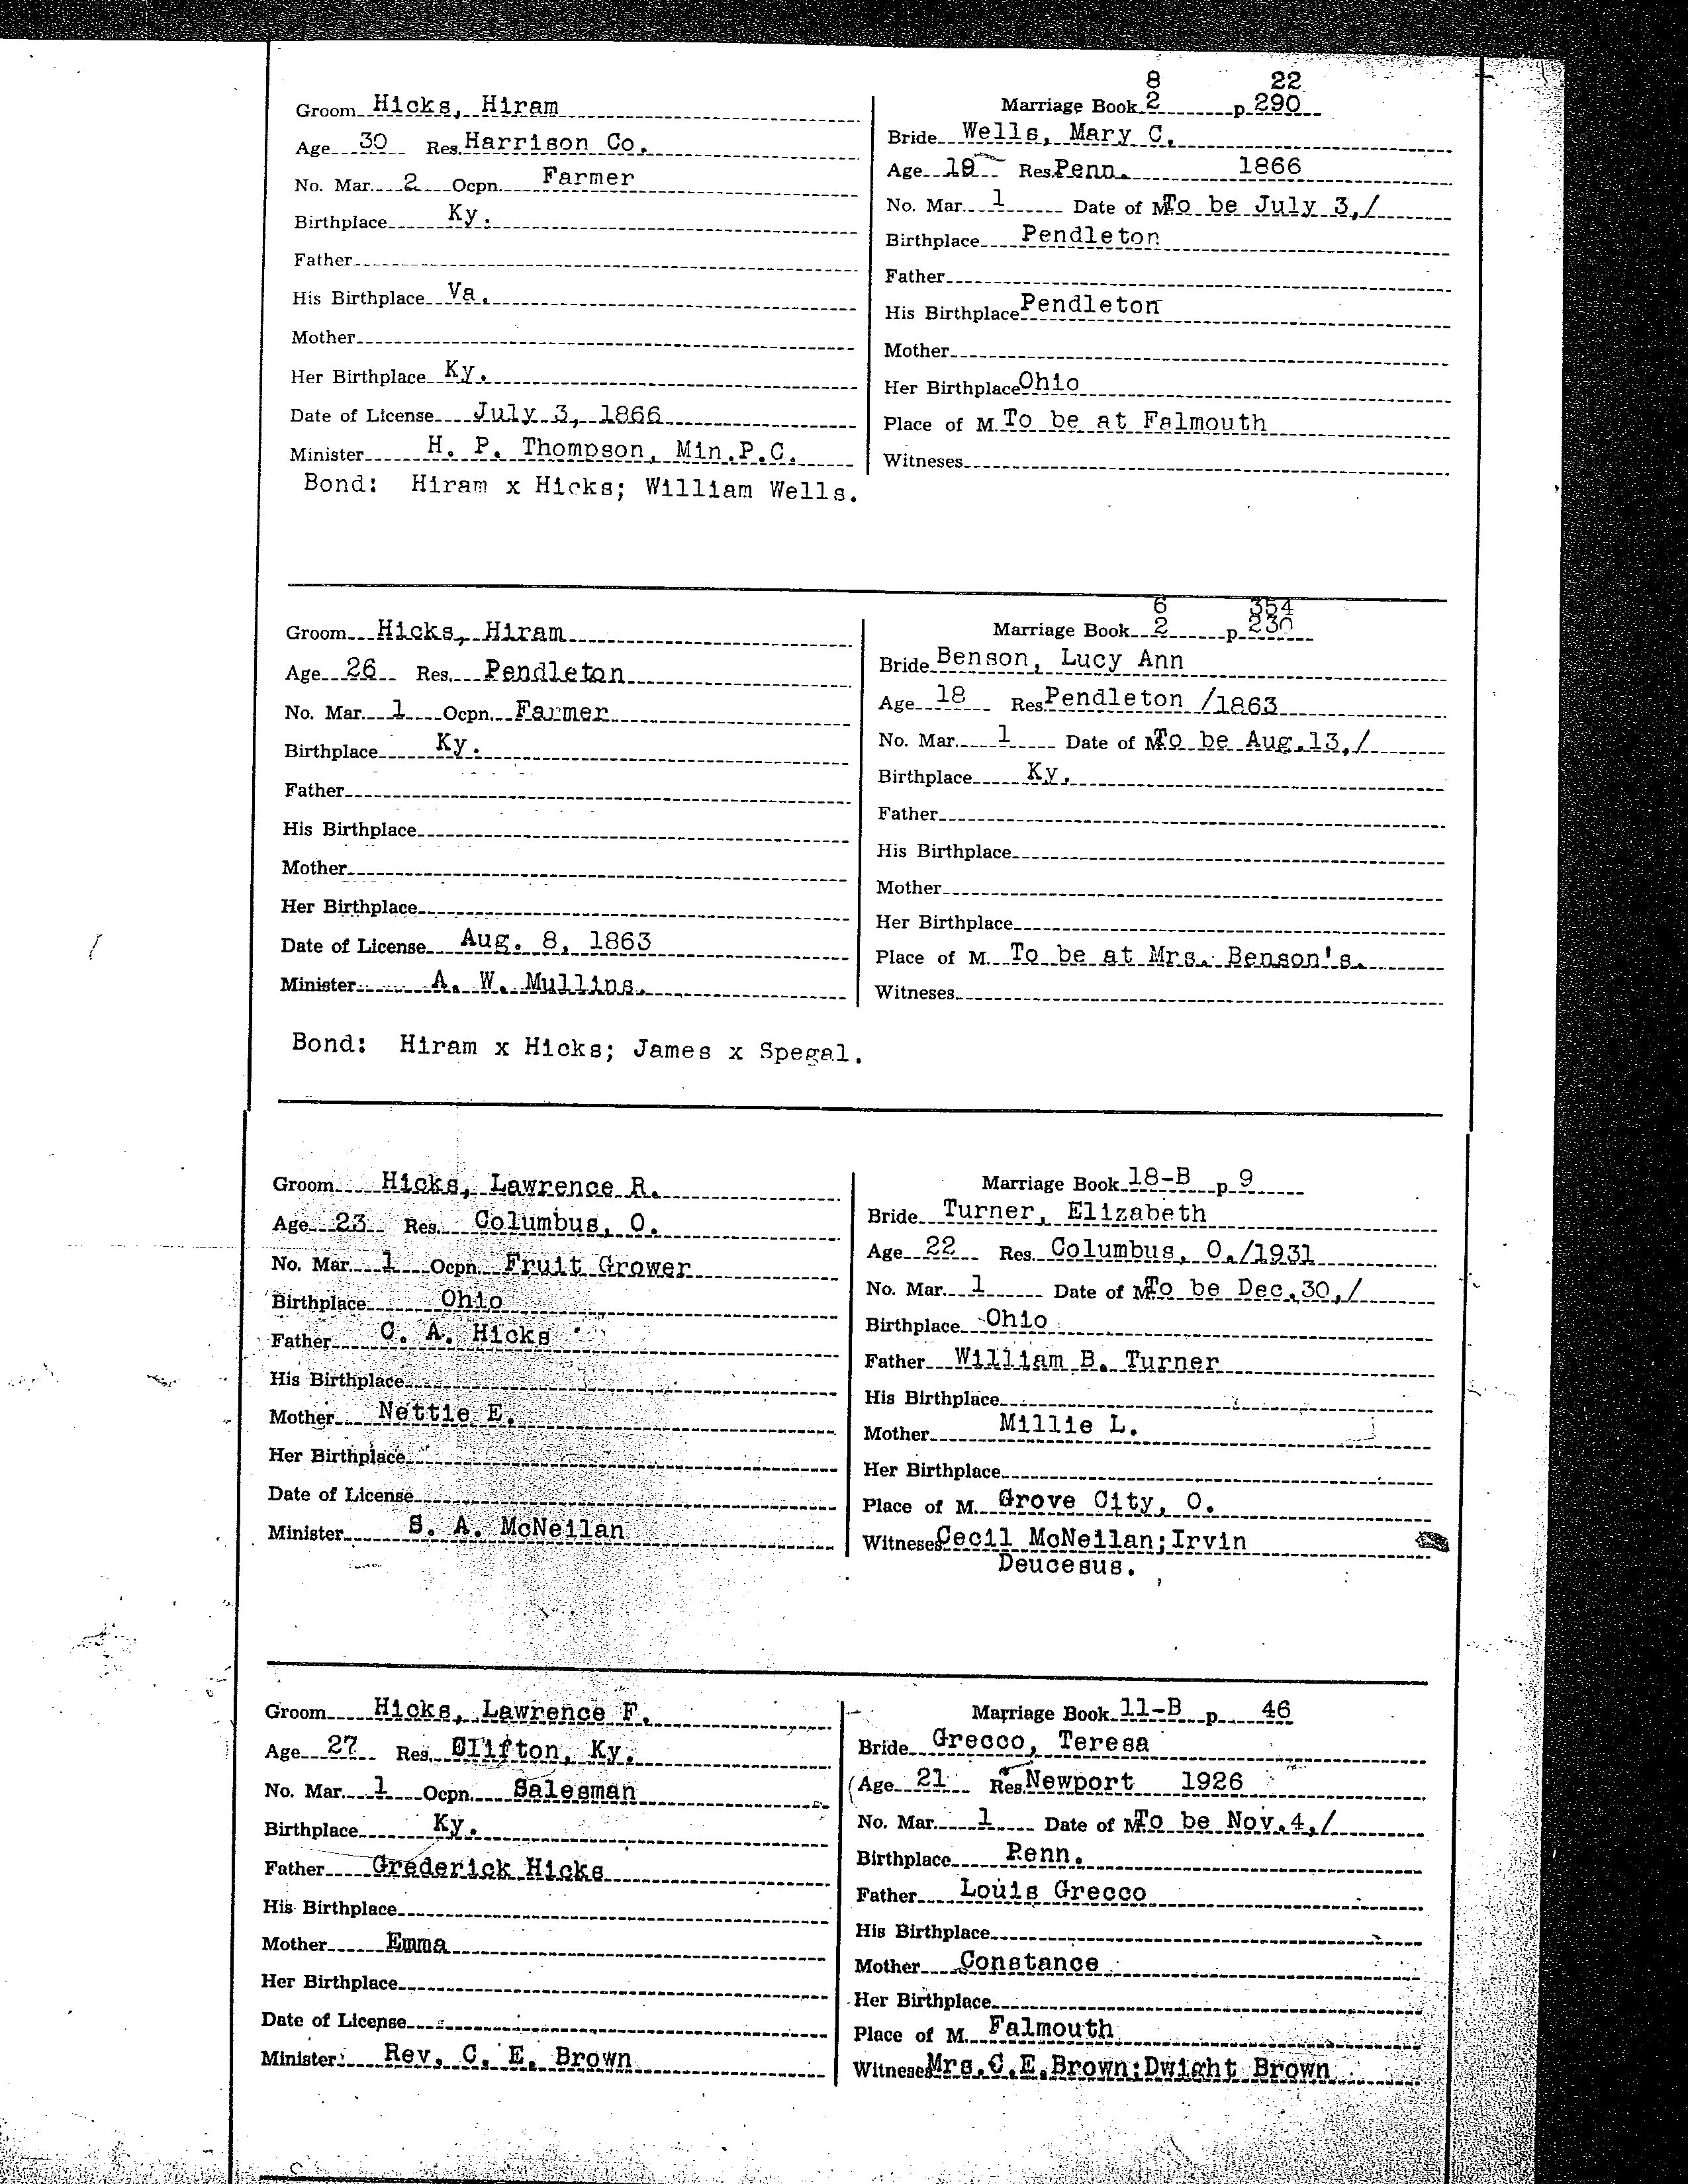 8 22
Groom Hicks, Hiram
Age 30 Res. Harrison Co.
No. Mar. 2 Ocpn. Farmer
Birthplace Ky.
Father
His Birthplace Va.
Mother
Her Birthplace Ky.
Date of License July 3, 1866
Minister H. P. Thompson, Min.P.C.
Marriage Book 2 p 290
Bride Wells, Mary C.
Age 19 Res. Penn. 1866
No. Mar. 1 Date of M. To be July 3,/
Birthplace Pendleton
Father
His Birthplace Pendleton
Mother
Her Birthplace Ohio
Place of M. To be at Falmouth
Witneses
Bond: Hiram x Hicks; William Wells.
6 354
Groom Hicks, Hiram
Age 26 Res. Pendleton
No. Mar. 1 Ocpn. Farmer
Birthplace Ky.
Father
His Birthplace
Mother
Her Birthplace
Date of License Aug. 8, 1863
Minister A. W. Mullins.
Marriage Book 2 p 230
Bride Benson, Lucy Ann
Age 18 Res. Pendleton /1863
No. Mar. 1 Date of M. To be Aug.13,/
Birthplace Ky.
Father
His Birthplace
Mother
Her Birthplace
Place of M. To be at Mrs. Benson's.
Witneses
Bond: Hiram x Hicks; James x Spegal.
Groom Hicks, Lawrence R.
Age 23 Res. Columbus, O.
No. Mar. 1 Ocpn. Fruit Grower
Birthplace Ohio
Father C. A. Hicks
His Birthplace
Mother Nettie E.
Her Birthplace
Date of License
Minister S. A. McNeilan
Marriage Book 18-B p 9
Bride Turner, Elizabeth
Age 22 Res. Columbus, O./1931
No. Mar. 1 Date of M. To be Dec.30,/
Birthplace Ohio
Father William B. Turner
His Birthplace
Mother Millie L.
Her Birthplace
Place of M. Grove City, O.
Witneses Cecil McNeilan; Irvin
Deucesus.
Groom Hicks, Lawrence F.
Age 27 Res. Clifton, Ky.
No. Mar. 1 Ocpn. Salesman
Birthplace Ky.
Father Grederick Hicks
His Birthplace
Mother Emma
Her Birthplace
Date of License
Minister Rev. C. E. Brown
Marriage Book 11-B p 46
Bride Grecco, Teresa
Age 21 Res. Newport 1926
No. Mar. 1 Date of M. To be Nov.4,/
Birthplace Penn.
Father Louis Grecco
His Birthplace
Mother Constance
Her Birthplace
Place of M. Falmouth
Witneses Mrs.C.E.Brown; Dwight Brown